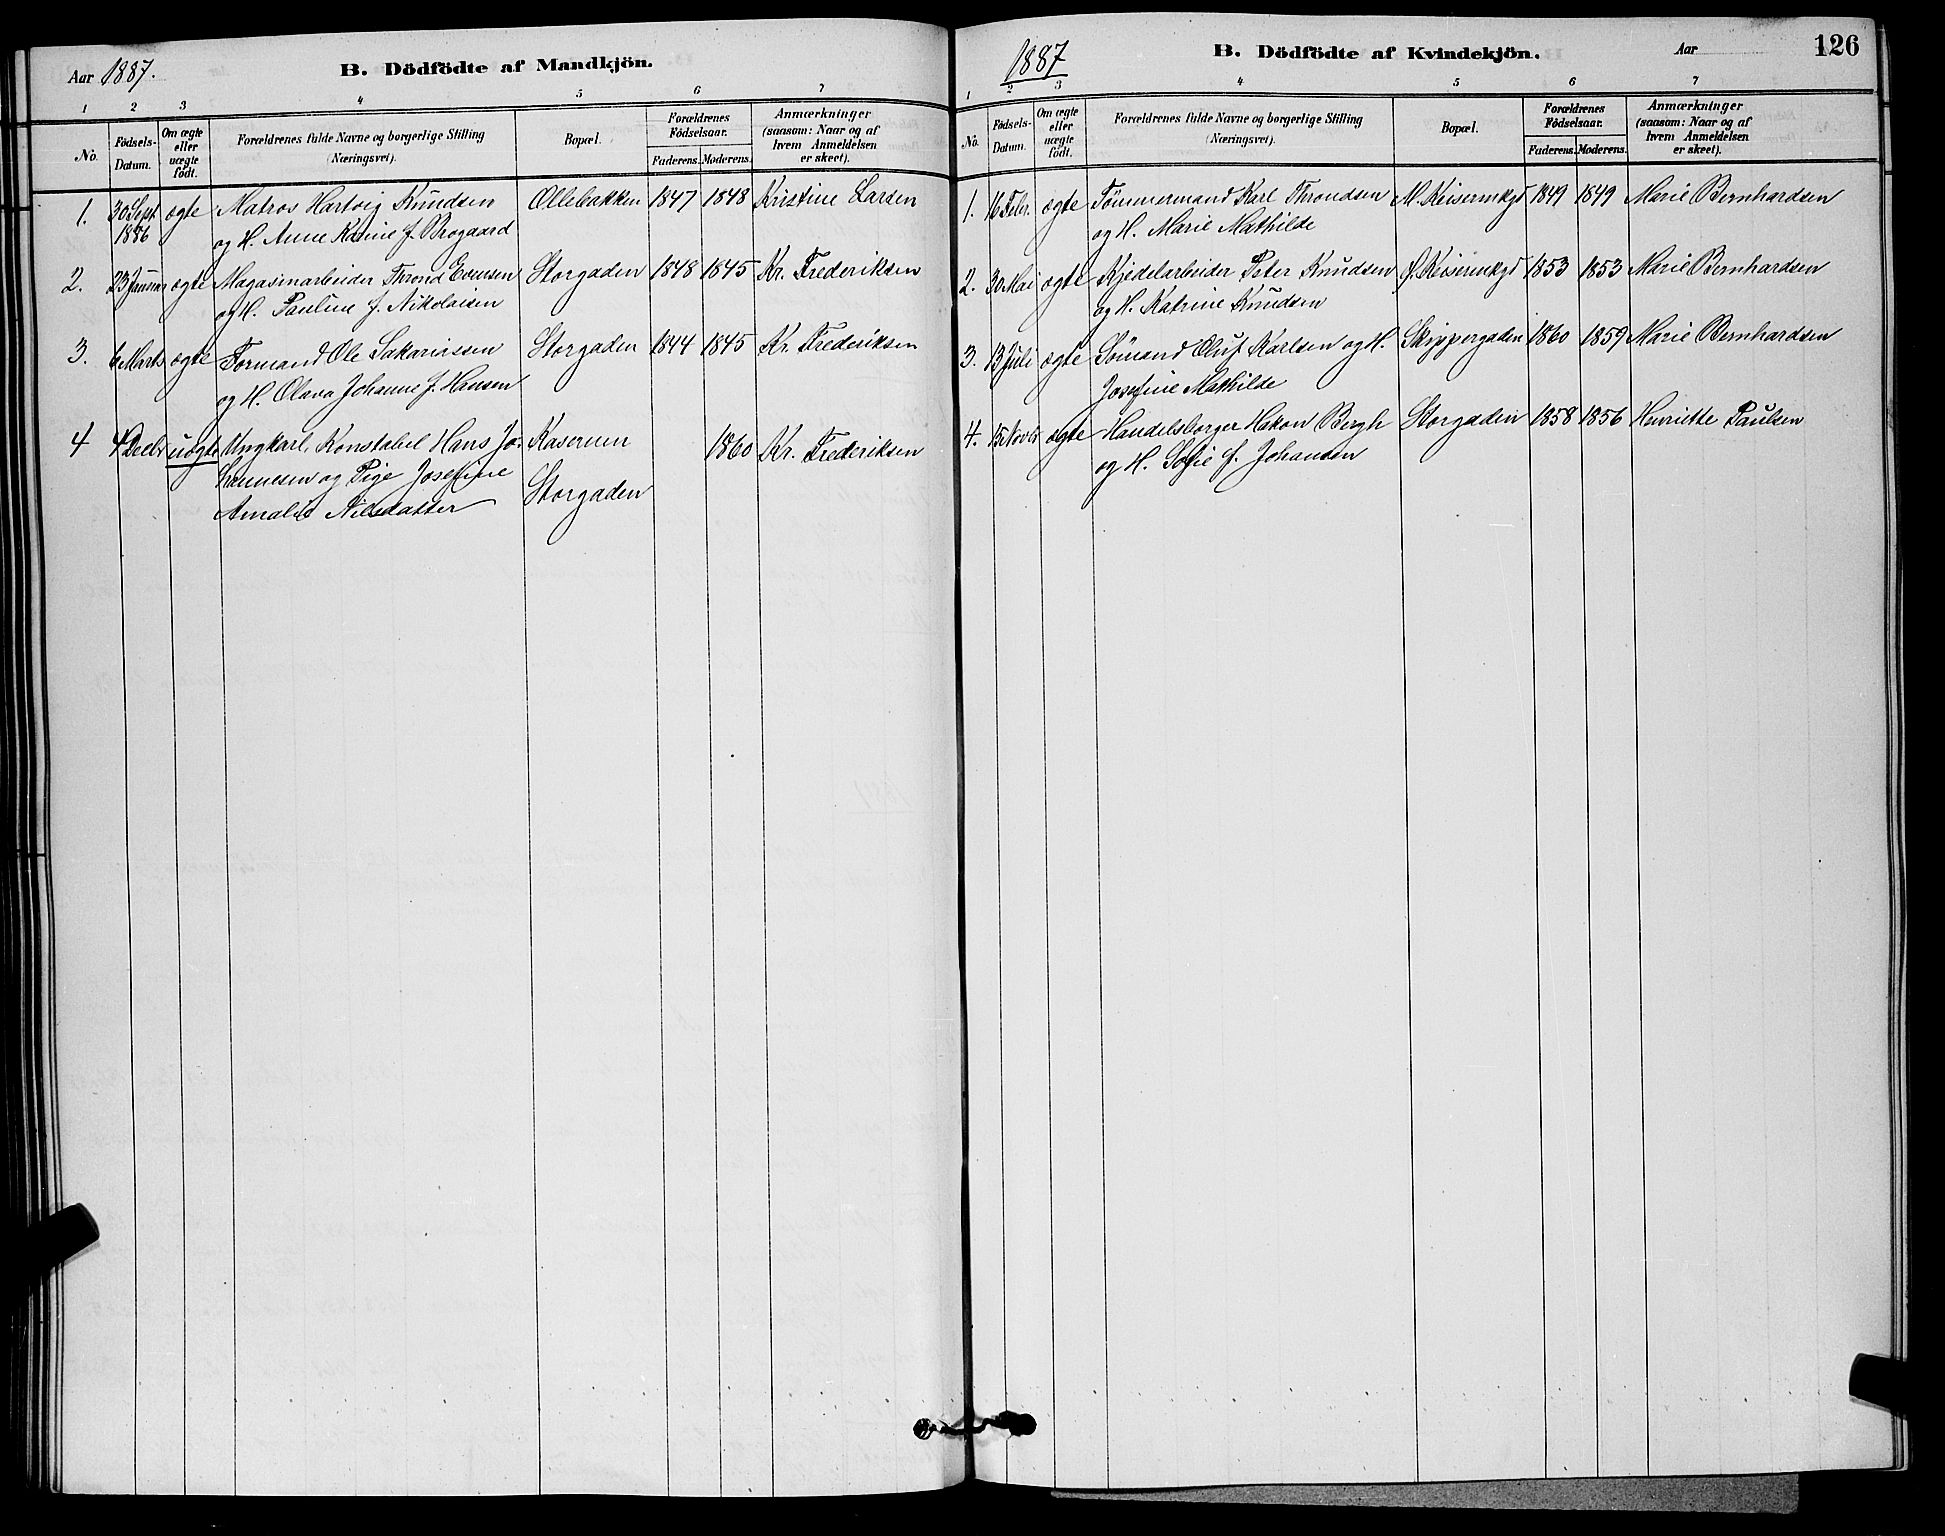 Aar 1887.
B. Dödfödte af Mandkjön.
1 2 3 4 5 6 7
No. Födsels-Datum. Om ægte eller uægte födt. Forældrenes fulde Navne og borgerlige Stilling (Næringsvei). Bopæl. Forældrenes Födselsaar. Faderens. Moderens. Anmærkninger (saasom: Naar og af hvem Anmeldelsen er skeet).
1. 30 Sept. ægte Matros Hartvig Knudsen Ollebakken 1847 1848 Kristine Larsen
1886 og H. Anne Karine f. Brogaard
2. 23 Januar ægte Magasinarbeider Thrond Evensen Storgaden 1848 1845 Kr. Frederiksen
og H. Pauline f. Nikolaisen
3. 6 Marts ægte Formand Ole Sakariassen Storgaden 1844 1845 Kr. Frederiksen
og H. Olava Johanne f. Hansen
4 4 Decbr uægte Ungkarl, Konstabel Hans Jo- Kasernen 1860 Kr. Frederiksen
hannesen og Pige Josefine Storgaden
Amalie Nilsdatter
1887
B. Dödfödte af Kvindekjön.
Aar
126
1 2 3 4 5 6 7
No. Födsels-Datum. Om ægte eller uægte födt. Forældrenes fulde Navne og borgerlige Stilling (Næringsvei). Bopæl. Forældrenes Födselsaar. Faderens. Moderens. Anmærkninger (saasom: Naar og af hvem Anmeldelsen er skeet).
1. 16 Febr. ægte Tömmermand Karl Throndsen M. Keisermkgd 1849 1849 Marie Bernhardsen
og H. Marie Mathilde
2. 30 Mai ægte Kjedelarbeider Peter Knudsen Ø. Keisermkgd 1853 1853 Marie Bernhardsen
og H. Katrine Knudsen
3. 13 Juli ægte Sömand Oluf Karlsen og H. Skippergaden 1860 1859 Marie Bernhardsen
Josefine Mathilde
4. 15 Novbr ægte Handelsborger Hakon Bergh Storgaden 1858 1856 Henriette Paulsen
og H. Sofie f. Johansen